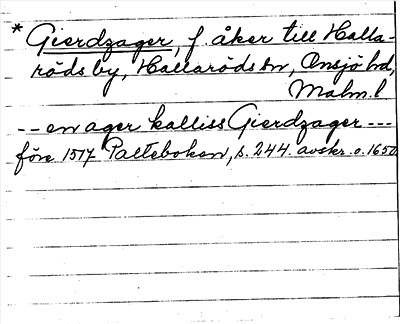 * Gierdzager, f. åker till Halla-
röds by, Hallaröds sn, Onsjö hd,
Malm. l
-- en ager kalliss Gierdzager ---
före 1517 Palteboken, s. 244. avskr. o. 1650.